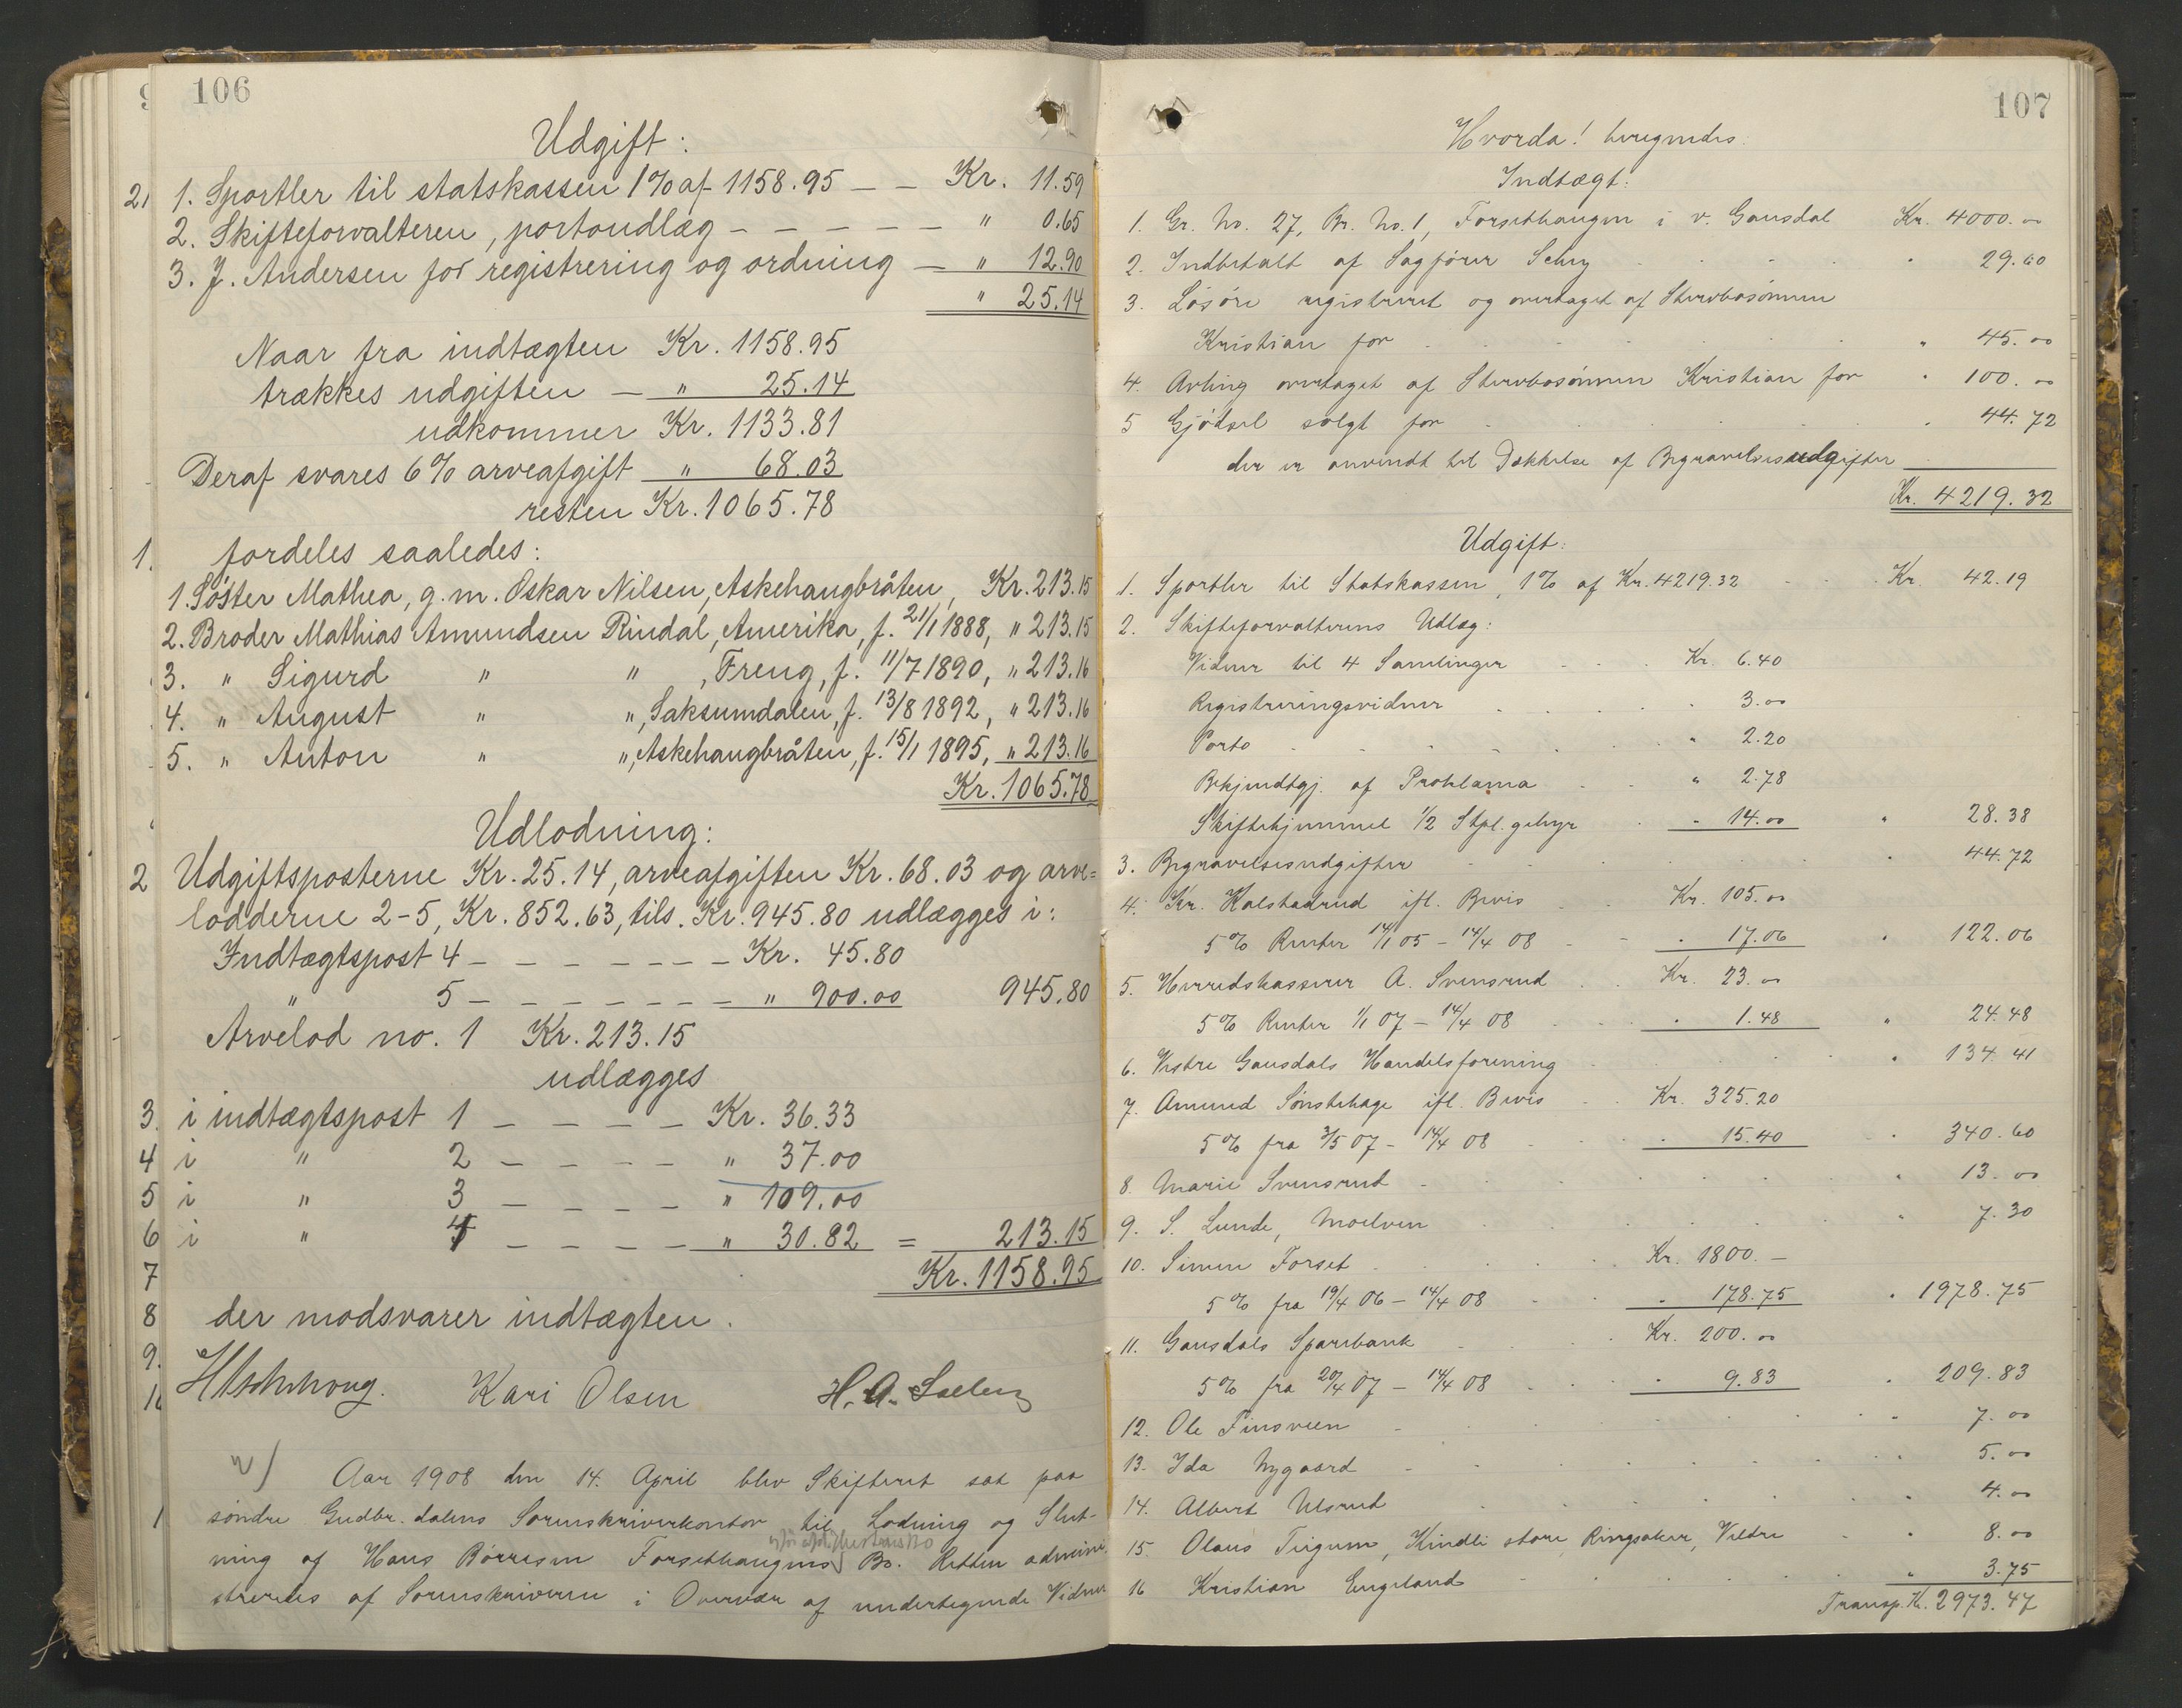 106
Udgift:
1. Sportler til statskassen 1% af 1158.95 — — Kr. 11.59
2. Skifteforvalteren, portoudlæg — — — — — " 0.65
3. J. Andersen for registrering og ordning — " 12.90
" 25.14
Naar fra indtægten Kr. 1158.95
trækkes udgiften — " 25.14
udkommer Kr. 1133.81
Deraf svares 6% arveafgift " 68.03
resten Kr. 1065.78
fordeles saaledes:
1. Söster Mathea, g. m. Oskar Nilsen, Askehaugbråten, Kr. 213.15
2. Broder Mathias Amundsen Rindal, Amerika, f. 21/1 1888, " 213.15
3. " Sigurd " " , Freng, f. 11/7 1890, " 213.16
4. " August " ", Saksumdalen, f. 13/8 1892, " 213.16
5. " Anton " ", Askehaugbråten, f. 15/1 1895, " 213.16
Kr. 1065.78
Udlodning:
Udgiftsposterne Kr. 25.14, arveafgiften Kr. 68.03 og arve=
lodderne 2-5, Kr. 852.63, tils. Kr. 945.80 udlægges i:
Indtægtspost 4 — — — — — — — Kr. 45.80
" 5 — — — — — — — " 900.00 945.80
Arvelod no. 1 Kr. 213.15
udlægges
i indtægtspost 1 — — — — — Kr. 36.33
i " 2 — — — — " 37.00
i " 3 — — — — " 109.00
i " 4 — — — — — " 30.82 = 213.15
Kr. 1158.95
der modsvarer indtægten.
Kari Olsen H. A.
Aar 1908 den 14. April blev Skifteret sat paa
søndre Gudbr. dalens Sorenskriverkontor til Lodning og Slut-
ning af Hans Børresen Forsethaugens Bo. Retten admini-
streredes af Sorenskriveren i Overvær af undertegnede Vidner
107
Hvorda! beregnedes
Indtægt:
1. Gr. No. 27, Br. No. 1, Forsethaugen i v. Gausdal Kr. 4000.00
2. Indbetalt af Sagfører 29.60
3. Løsøre registreret og overtaget af Stervbosønnen
Kristian for " 45.00
4. Avling overtaget af Stervbosønnen Kristian for " 100.00
5 Gjødsel solgt for 44.72
der er anvendt til Dækkelse af Begravelsesudgifter
Kr. 4219.32
Udgift:
1. Sportler til Statskassen, 1% af Kr. 4219.32 Kr. 42.19
2. Skifteforvalterens Udlæg:
Vidner til 4 Samlinger Kr. 6.40
Registreringsvidner 3.00
Porto " 2.20
Bekjendtgj. af Proklama " 2.78
Skiftehjemmel 1/2 Stpl. gebyr " 14.00 " 28.38
3. Begravelsesudgifter " 44.72
4. Kr. Kalstadrud ifl. Bevis Kr. 105.00
5% Renter 14/1 05 - 14/4 08 " 17.06 " 122.06
5. Herredskasserer A. Svensrud Kr. 23.00
5% Renter 1/1 07 - 14/4 08 " 1.48 " 24.48
6. Vestre Gausdals Handelsforening " 134.41
7. Amund Sønstehage ifl. Bevis Kr. 325.20
5% fra 3/5 07 - 14/4 08 " 15.40 " 340.60
8. Marie Svensrud " 13.00
9. S. Lunde, Moelven " 7.30
10. Simen Forset Kr. 1800.—
5% fra 19/4 06 - 14/4 08 " 178.75 " 1978.75
11. Gausdals Sparebank Kr. 200.00
5% fra 20/4 07 - 14/4 08 " 9.83 " 209.83
12. Ole Finsveen " 7.00
13. Ida Nygaard " 5.00
14. Albert Ulsrud " 4.00
15. Olaus Teigum, Kindli store, Ringsaker, Veldre " 8.00
16 Kristian Engeland " 3.75
Transp. Kr. 2973.47